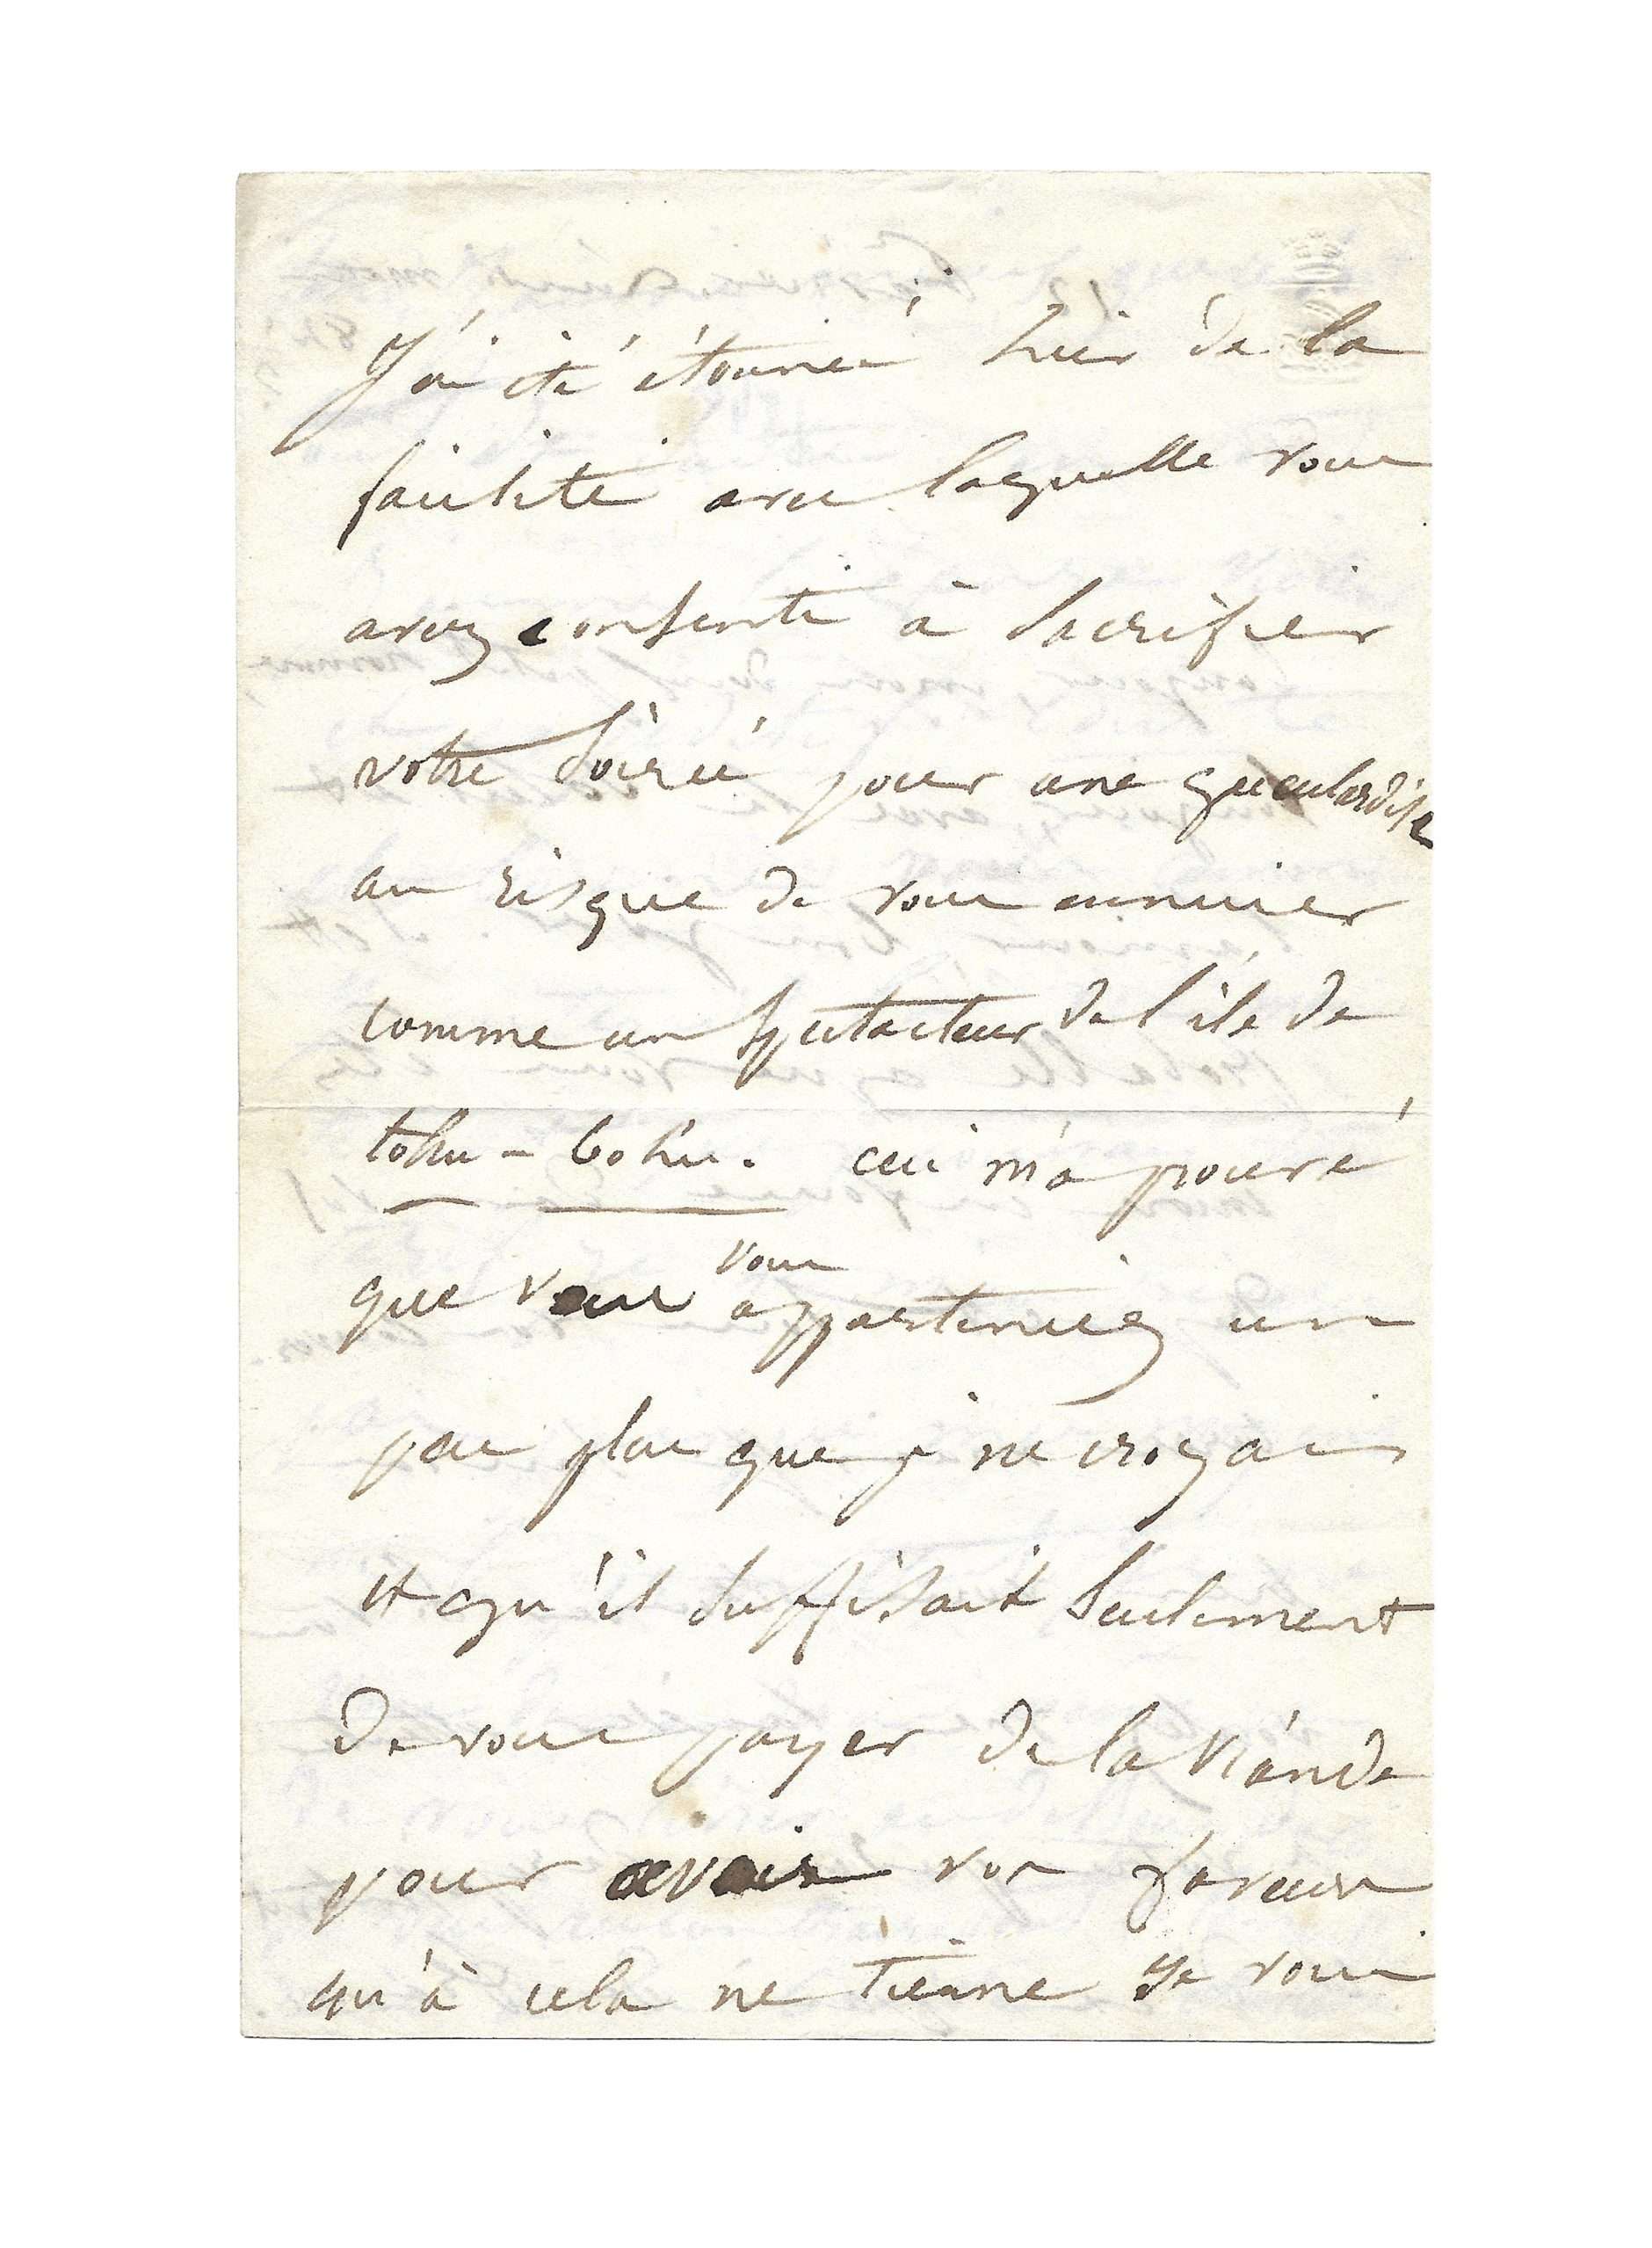 J'ai été étonnée hier de la
facilité avec laquelle vous
avez consenti à sacrifier
votre soirée pour une gueulardise
au risque de vous ennuier
comme un spectacteur de l'île de
tohu-bohu. ceci m'a prouvé
que vous vous apparteniez un
peu plus que je ne croyais
et qu'il suffisait seulement
de vous payer de la viande
pour avoir vos faveurs
qu'à cela ne tienne je vous